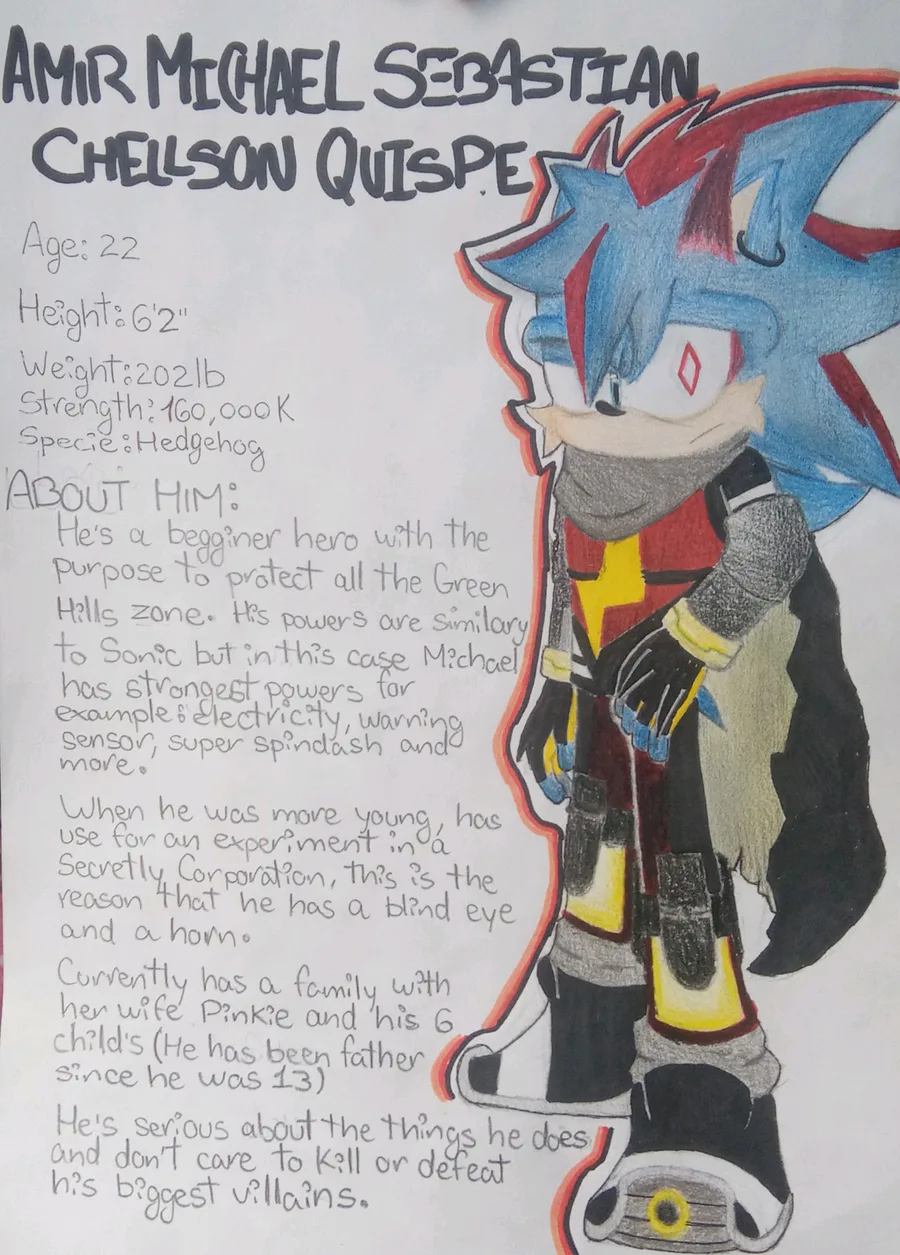 AMIR MICHAEL SEBASTIAN
CHELLSON QUISPE
Age: 22
Height: 6'2"
Weight: 202lb
Strength: 160,000K
Specie: Hedgehog
ABOUT HIM:
He's a begginer hero with the
purpose to protect all the Green
Hills zone. His powers are similary
to Sonic but in this case Michael
has strongest powers for
example: electricity, warning
sensor, super spindash and
more.
When he was more young, has
use for an experiment in a
Secretly Corporation, this is the
reason that he has a blind eye
and a horn.
Currently has a family with
her wife Pinkie and his 6
child's (He has been father
since he was 13)
He's serious about the things he does
and don't care to kill or defeat
his biggest villains.